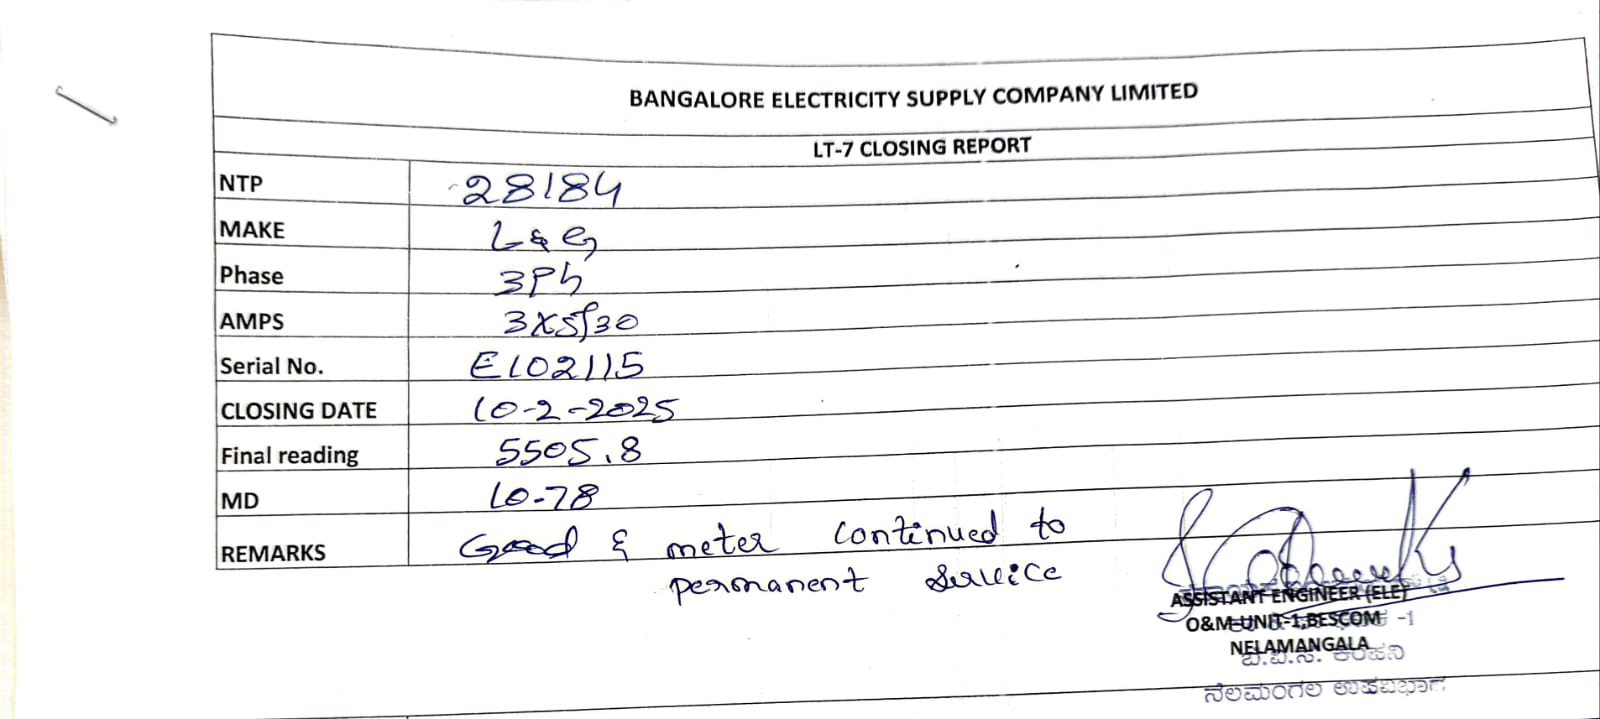 BANGALORE ELECTRICITY SUPPLY COMPANY LIMITED
LT-7 CLOSING REPORT
NTP 28184
MAKE L&G
Phase 3Ph
AMPS 3X5/30
Serial No. E102115
CLOSING DATE 10-2-2025
Final reading 5505.8
MD 10-78
REMARKS Good & meter continued to
permanent service
ASSISTANT ENGINEER (ELE)
O&M-UNIT-1,BESCOM -1
NELAMANGALA
ಬೆ.ವಿ.ಸ. ಕಂಪನಿ
ನೆಲಮಂಗಲ ಉಪವಿಭಾಗ